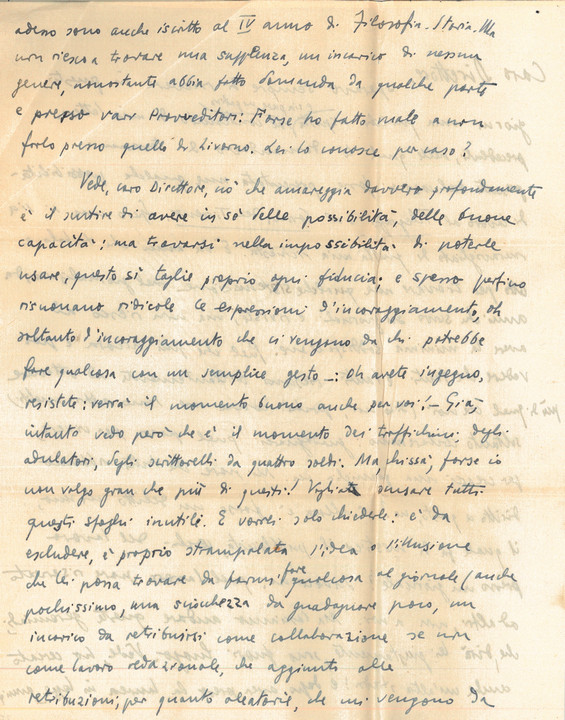 adesso sono anche iscritto al IV anno di Filosofia-Storia. Ma
non riesco a trovare una supplenza, un incarico di nessun
genere, nonostante abbia fatto domanda da qualche parte
e presso vari Provveditori: Forse ho fatto male a non
farlo presso quello di Livorno. Lei lo conosce per caso?
Vede, caro Direttore, ciò che amareggia davvero profondamente
è il sentire di avere in sé delle possibilità, delle buone
capacità; ma trovarsi nella impossibilità di poterle
usare, questo sì taglie proprio ogni fiducia: e spesso perfino
risuonano ridicole le espressioni d'incoraggiamento, oh
soltanto d'incoraggiamento che ci vengono da chi potrebbe
fare qualcosa con un semplice gesto -: Oh avete ingegno,
resistete; verrà il momento buono anche per voi! - Già,
intanto vedo però che è il momento dei trafficini, degli
adulatori, degli scrittorelli da quattro soldi. Ma chissà, forse io
non valgo gran che più di questi! Vogliate scusare tutti
questi sfoghi inutili. E vorrei solo chiederle: è da
escludere, è proprio strampalata l'idea o l'illusione
che lei possa trovare da farmi fare qualcosa al giornale (anche
pochissimo, una sciocchezza da guadagnare poco, un
incarico da retribuirsi come collaborazione se non
come lavoro redazionale, che aggiunto alle
retribuzioni, per quanto aleatorie, che mi vengono da